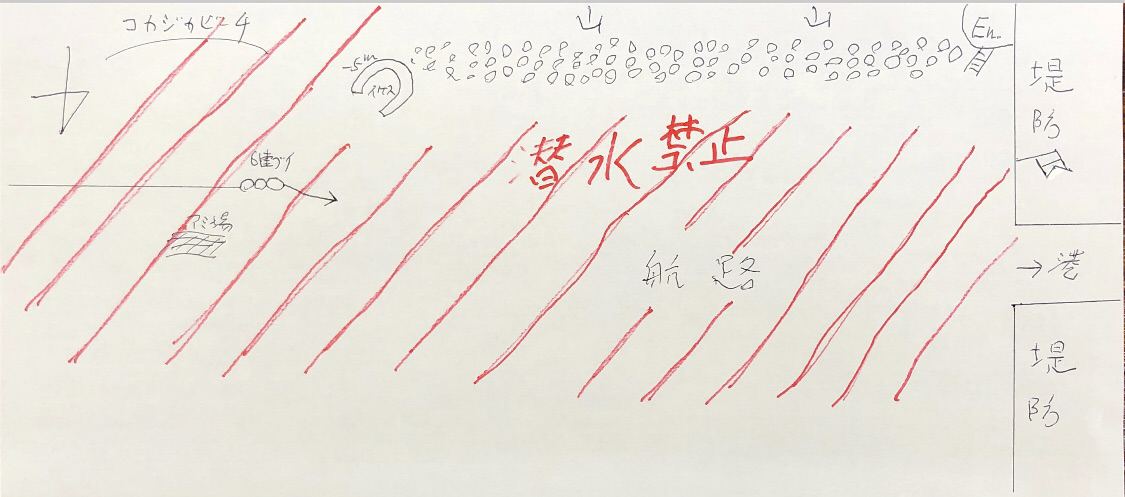 コカジカビーチ
山
山
En.
-5m
イケス
6連ブイ
アミ場
潜水禁止
航路
堤防
→港
堤防